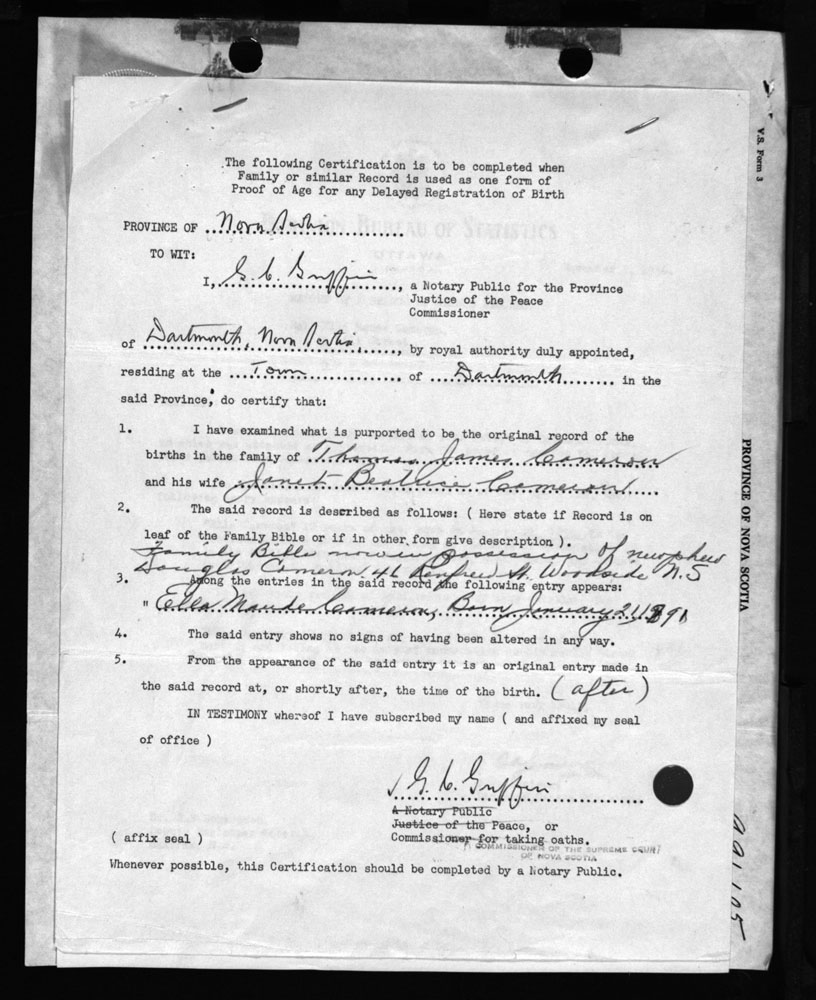 The following Certification is to be completed when
Family or similar Record is used as one form of
Proof of Age for any Delayed Registration of Birth
V.S. Form 3
BUREAU OF STATISTICS
OTTAWA
PROVINCE OF Nova Scotia
TO WIT:
I, G. C. Griffin, a Notary Public for the Province
Justice of the Peace
Commissioner
of Dartmouth, Nova Scotia, by royal authority duly appointed,
residing at the Town of Dartmouth in the
said Province, do certify that:
1. I have examined what is purported to be the original record of the
births in the family of Thomas James Cameron
and his wife Janet Beatrice Cameron
2. The said record is described as follows: ( Here state if Record is on
leaf of the Family Bible or if in other form give description ).
Family Bible now in possession of newphew
Douglas Cameron 46 Renfrew St. Woodside N.S
3. Among the entries in the said record the following entry appears:
" Ella Maude Cameron, Born January 21, 1891
4. The said entry shows no signs of having been altered in any way.
5. From the appearance of the said entry it is an original entry made in
the said record at, or shortly after, the time of the birth. (after)
IN TESTIMONY whereof I have subscribed my name ( and affixed my seal
of office )
G. C. Griffin
A Notary Public
Justice of the Peace, or
Commissioner for taking oaths.
A COMMISSIONER OF THE SUPREME COURT
OF NOVA SCOTIA
( affix seal )
Whenever possible, this Certification should be completed by a Notary Public.
PROVINCE OF NOVA SCOTIA